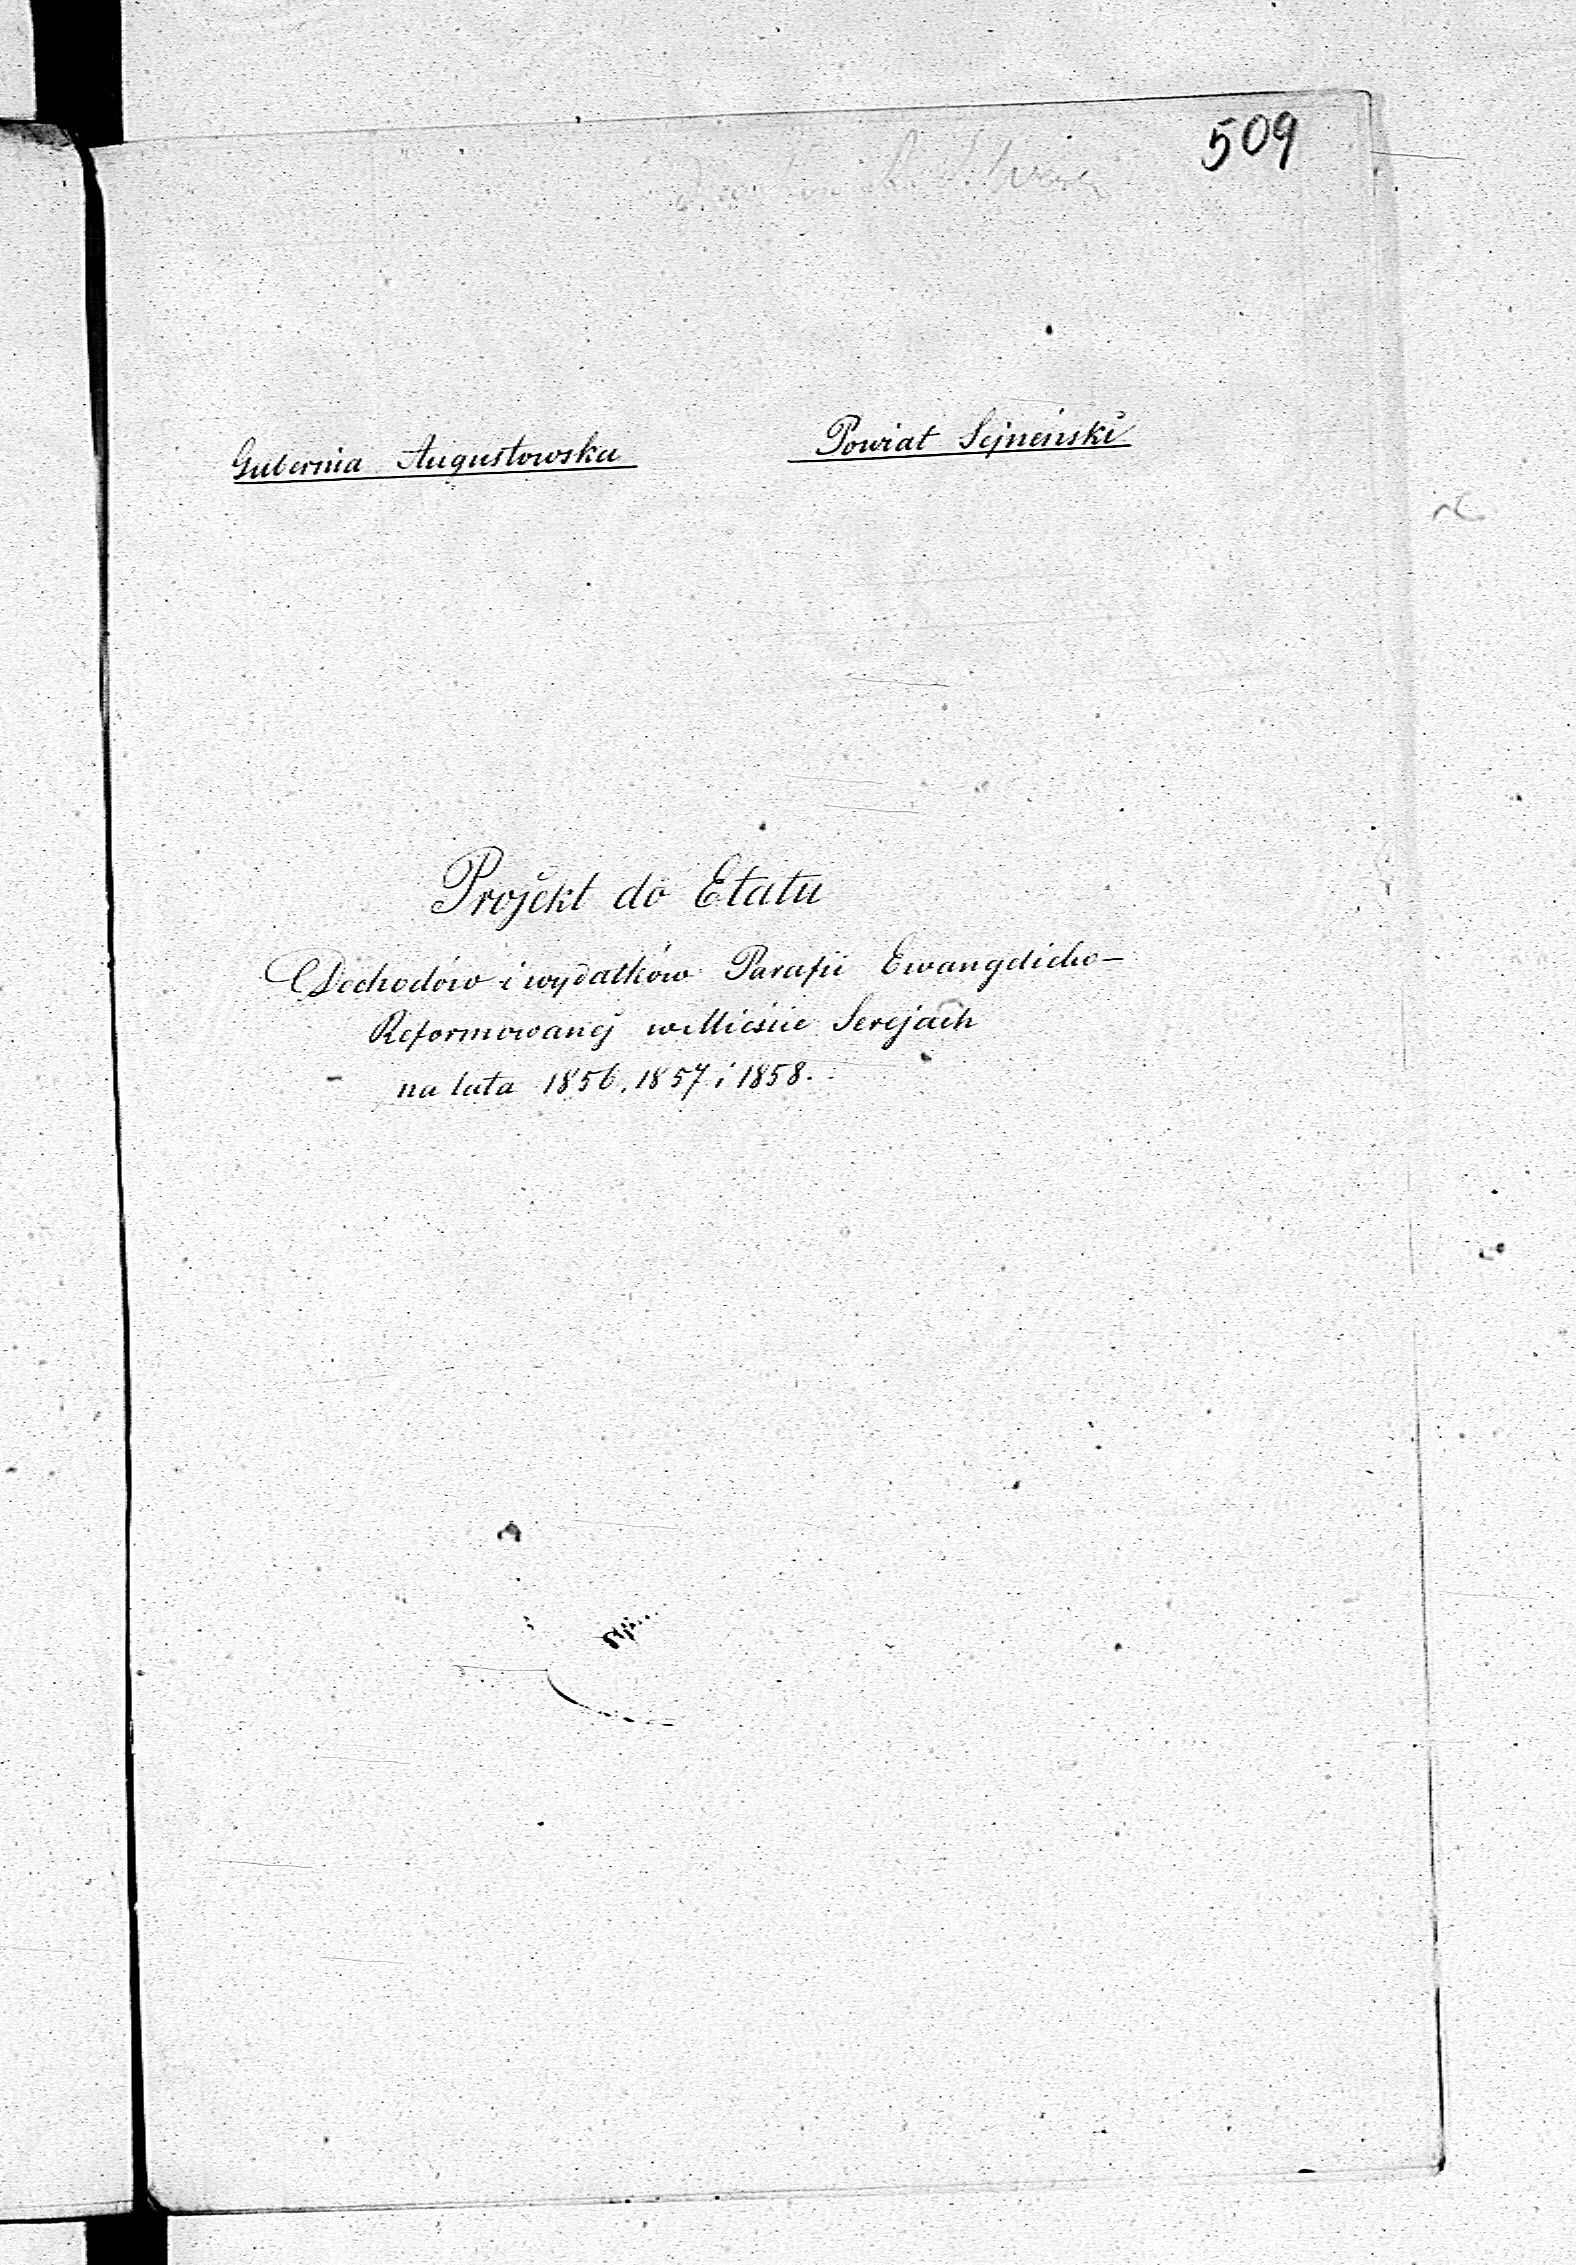 509
Gubernia Augustowska Powiat Sejneński
Projekt do Etatu
Dochodów i wydatków Parafii Ewangelicko-
Reformowanej w Mieście Serejach
na lata 1856, 1857 i 1858.